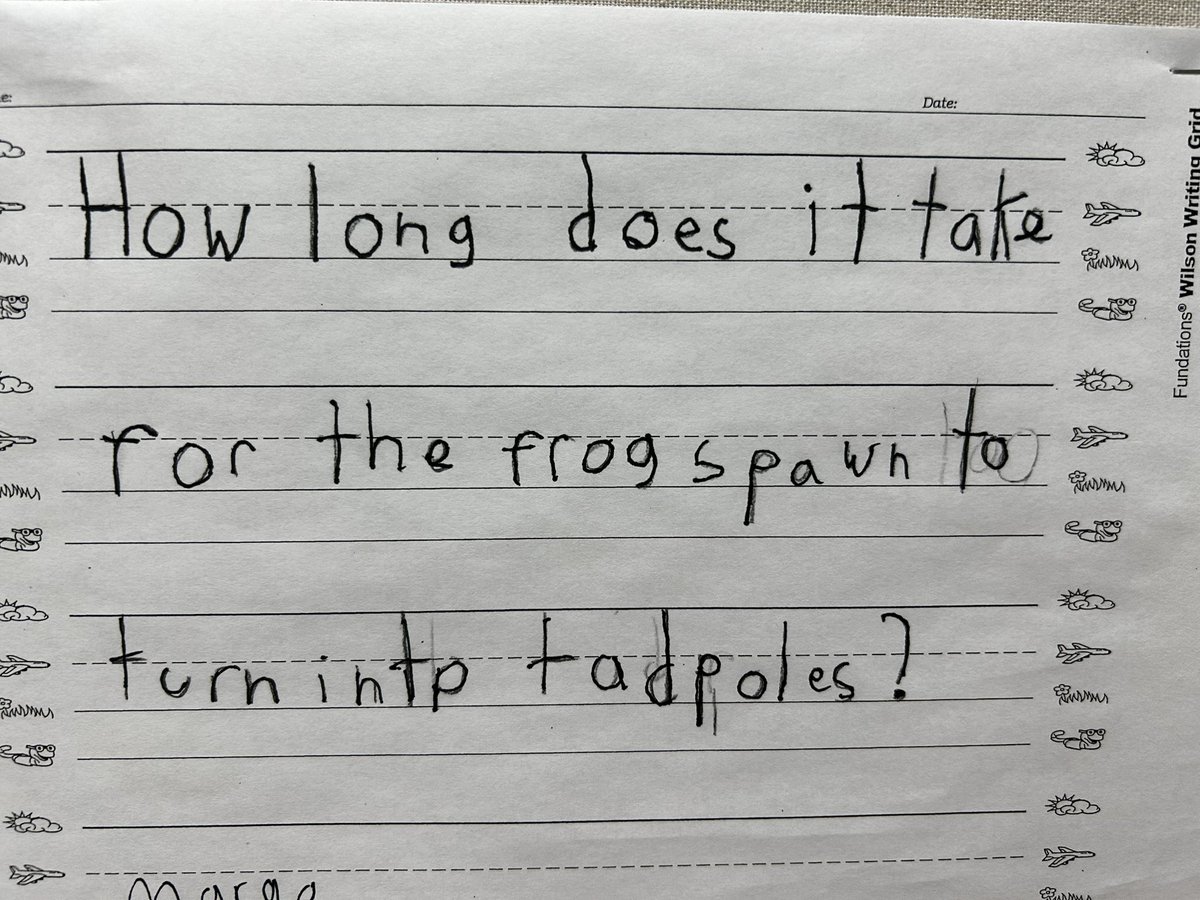 e:
Date:
How long does it take
for the frog spawn to
turn into tadpoles?
Fundations® Wilson Writing Grid